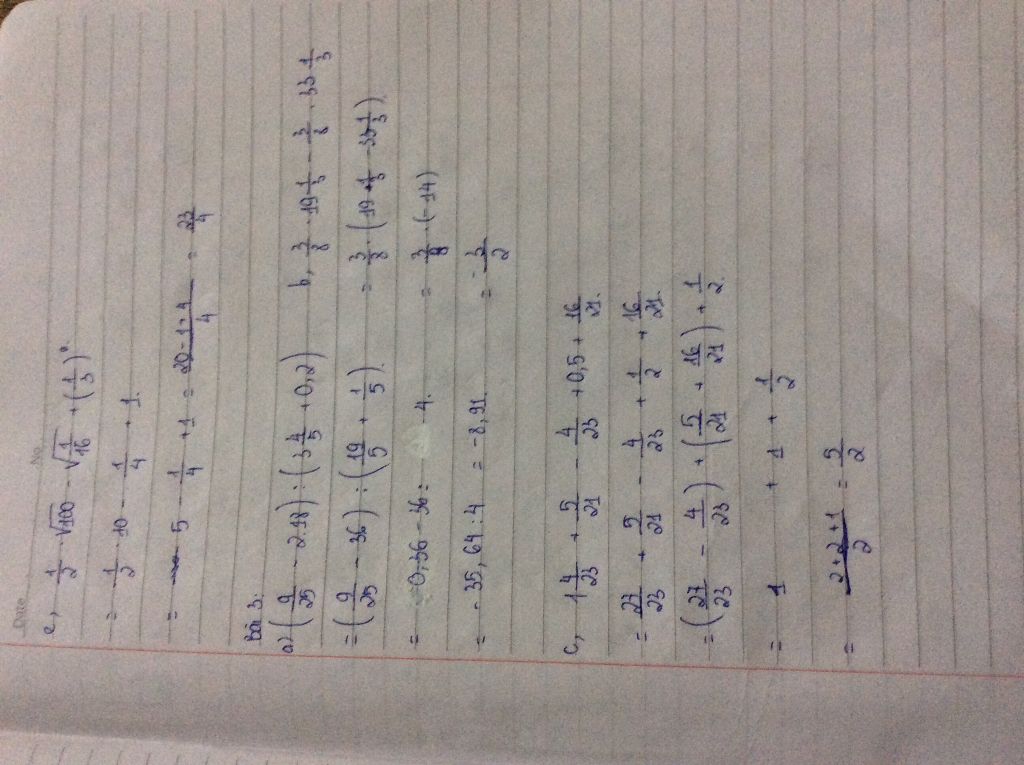 No
Date
e, 1/2 . √100 - √(1/16) + (1/3)⁰
= 1/2 . 10 - 1/4 + 1
= 5 - 1/4 + 1 = (20 - 1 + 4)/4 = 23/4
Bài 3:
a) (9/25 - 2.18) : (3 4/5 + 0,2)
= (9/25 - 36) : (19/5 + 1/5)
= 0,36 - 36 : 4.
= - 35,64 : 4 = -8,91
b, 3/8 . 19 1/3 - 3/8 . 33 1/3
= 3/8 . (19 1/3 - 33 1/3)
= 3/8 . (-14)
= - 3/2
c, 1 4/23 + 5/21 - 4/23 + 0,5 + 16/21
= 27/23 + 5/21 - 4/23 + 1/2 + 16/21
= (27/23 - 4/23) + (5/21 + 16/21) + 1/2
= 1 + 1 + 1/2
= (2+2+1)/2 = 5/2